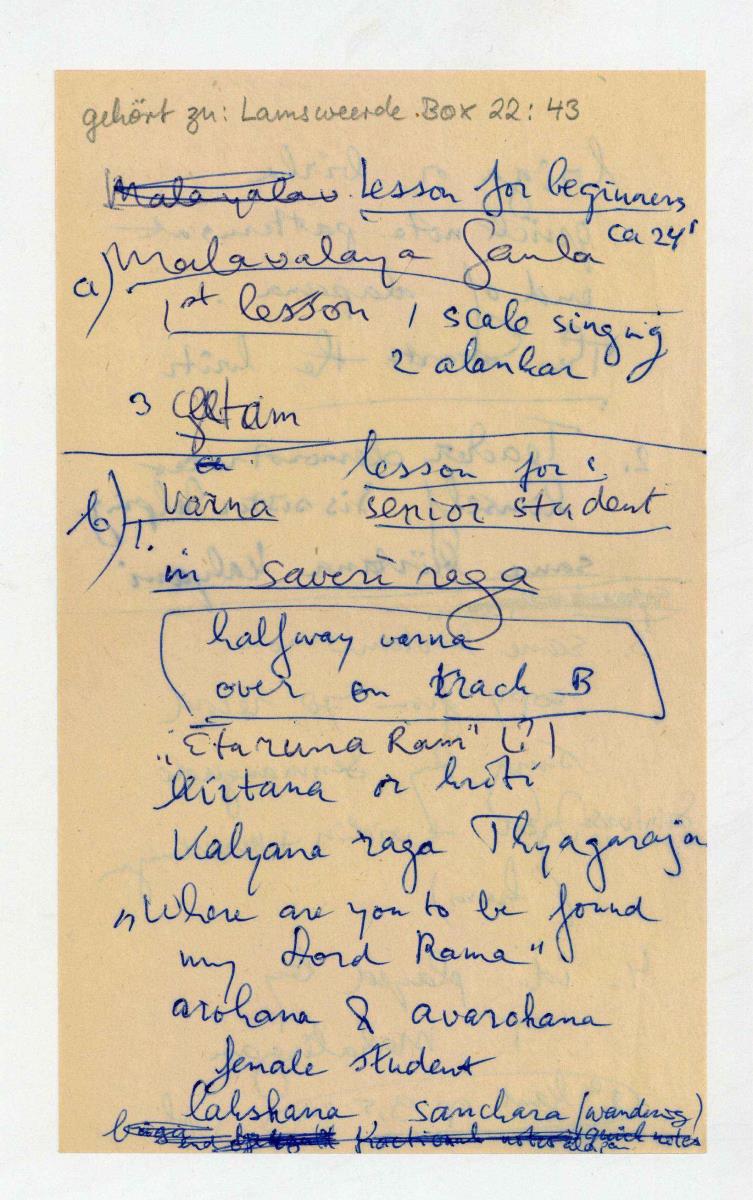 gehört zu: Lamsweerde Box 22: 43
Malavalav lesson for beginners
ca 24'
a) Malavalaya Gaula
1st lesson 1 scale singing
2 alankar
3 Gitam
lesson for
b) 1. varna senior student
in saveri raga
halfway varna
over on track B
„Etaruna Ram" (?)
kirtana or kriti
Kalyana raga Thyagaraja
„Where are you to be found
my Lord Rama"
arohana & avarohana
female student
lakshana, sanchara (wandering)